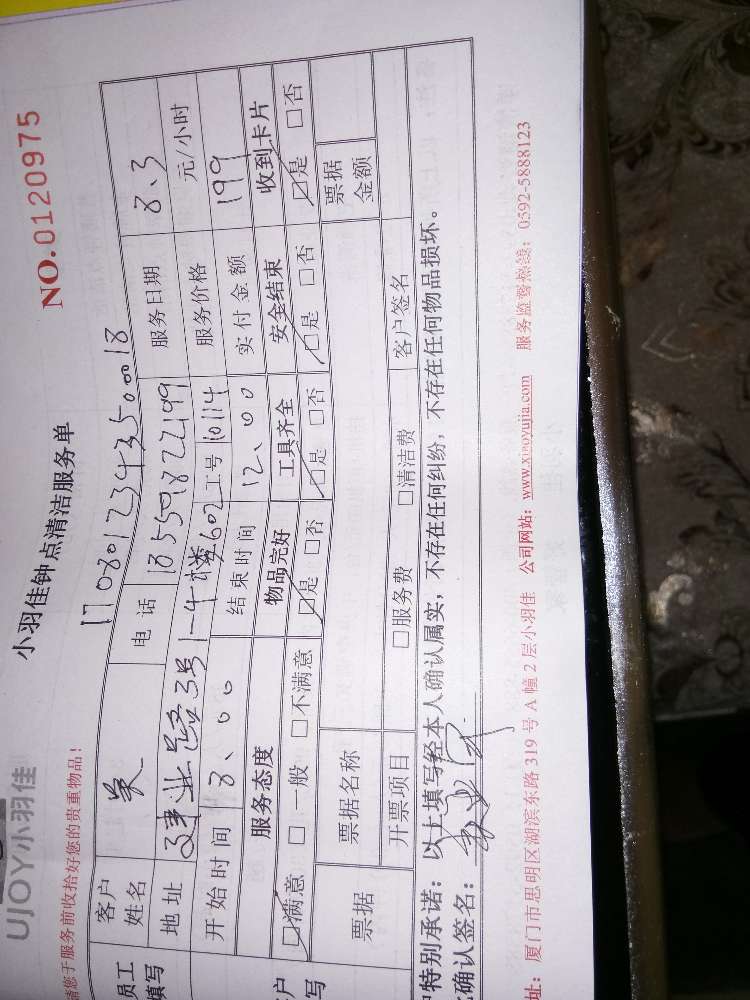 UJOY小羽佳
小羽佳钟点清洁服务单
NO.0120975
请您于服务前收拾好您的贵重物品！
170801234350018
员工填写
客户姓名 吴 电话 18559822199 服务日期 8.3
地址 建业路3号1-4楼602 工号 10114 服务价格 元/小时
开始时间 8.00 结束时间 12.00 实付金额 199
服务态度 物品完好 工具齐全 安全结束 收到卡片
☑满意 □一般 □不满意 ☑是 □否 ☑是 □否 ☑是 □否 ☑是 □否
票据 票据名称 票据金额
开票项目 □服务费 □清洁费 客户签名
户特别承诺：以上填写经本人确认属实，不存在任何纠纷，不存在任何物品损坏。
确认签名：
址：厦门市思明区湖滨东路319号A幢2层小羽佳 公司网站：www.xiaoyujia.com 服务监督热线：0592-5888123